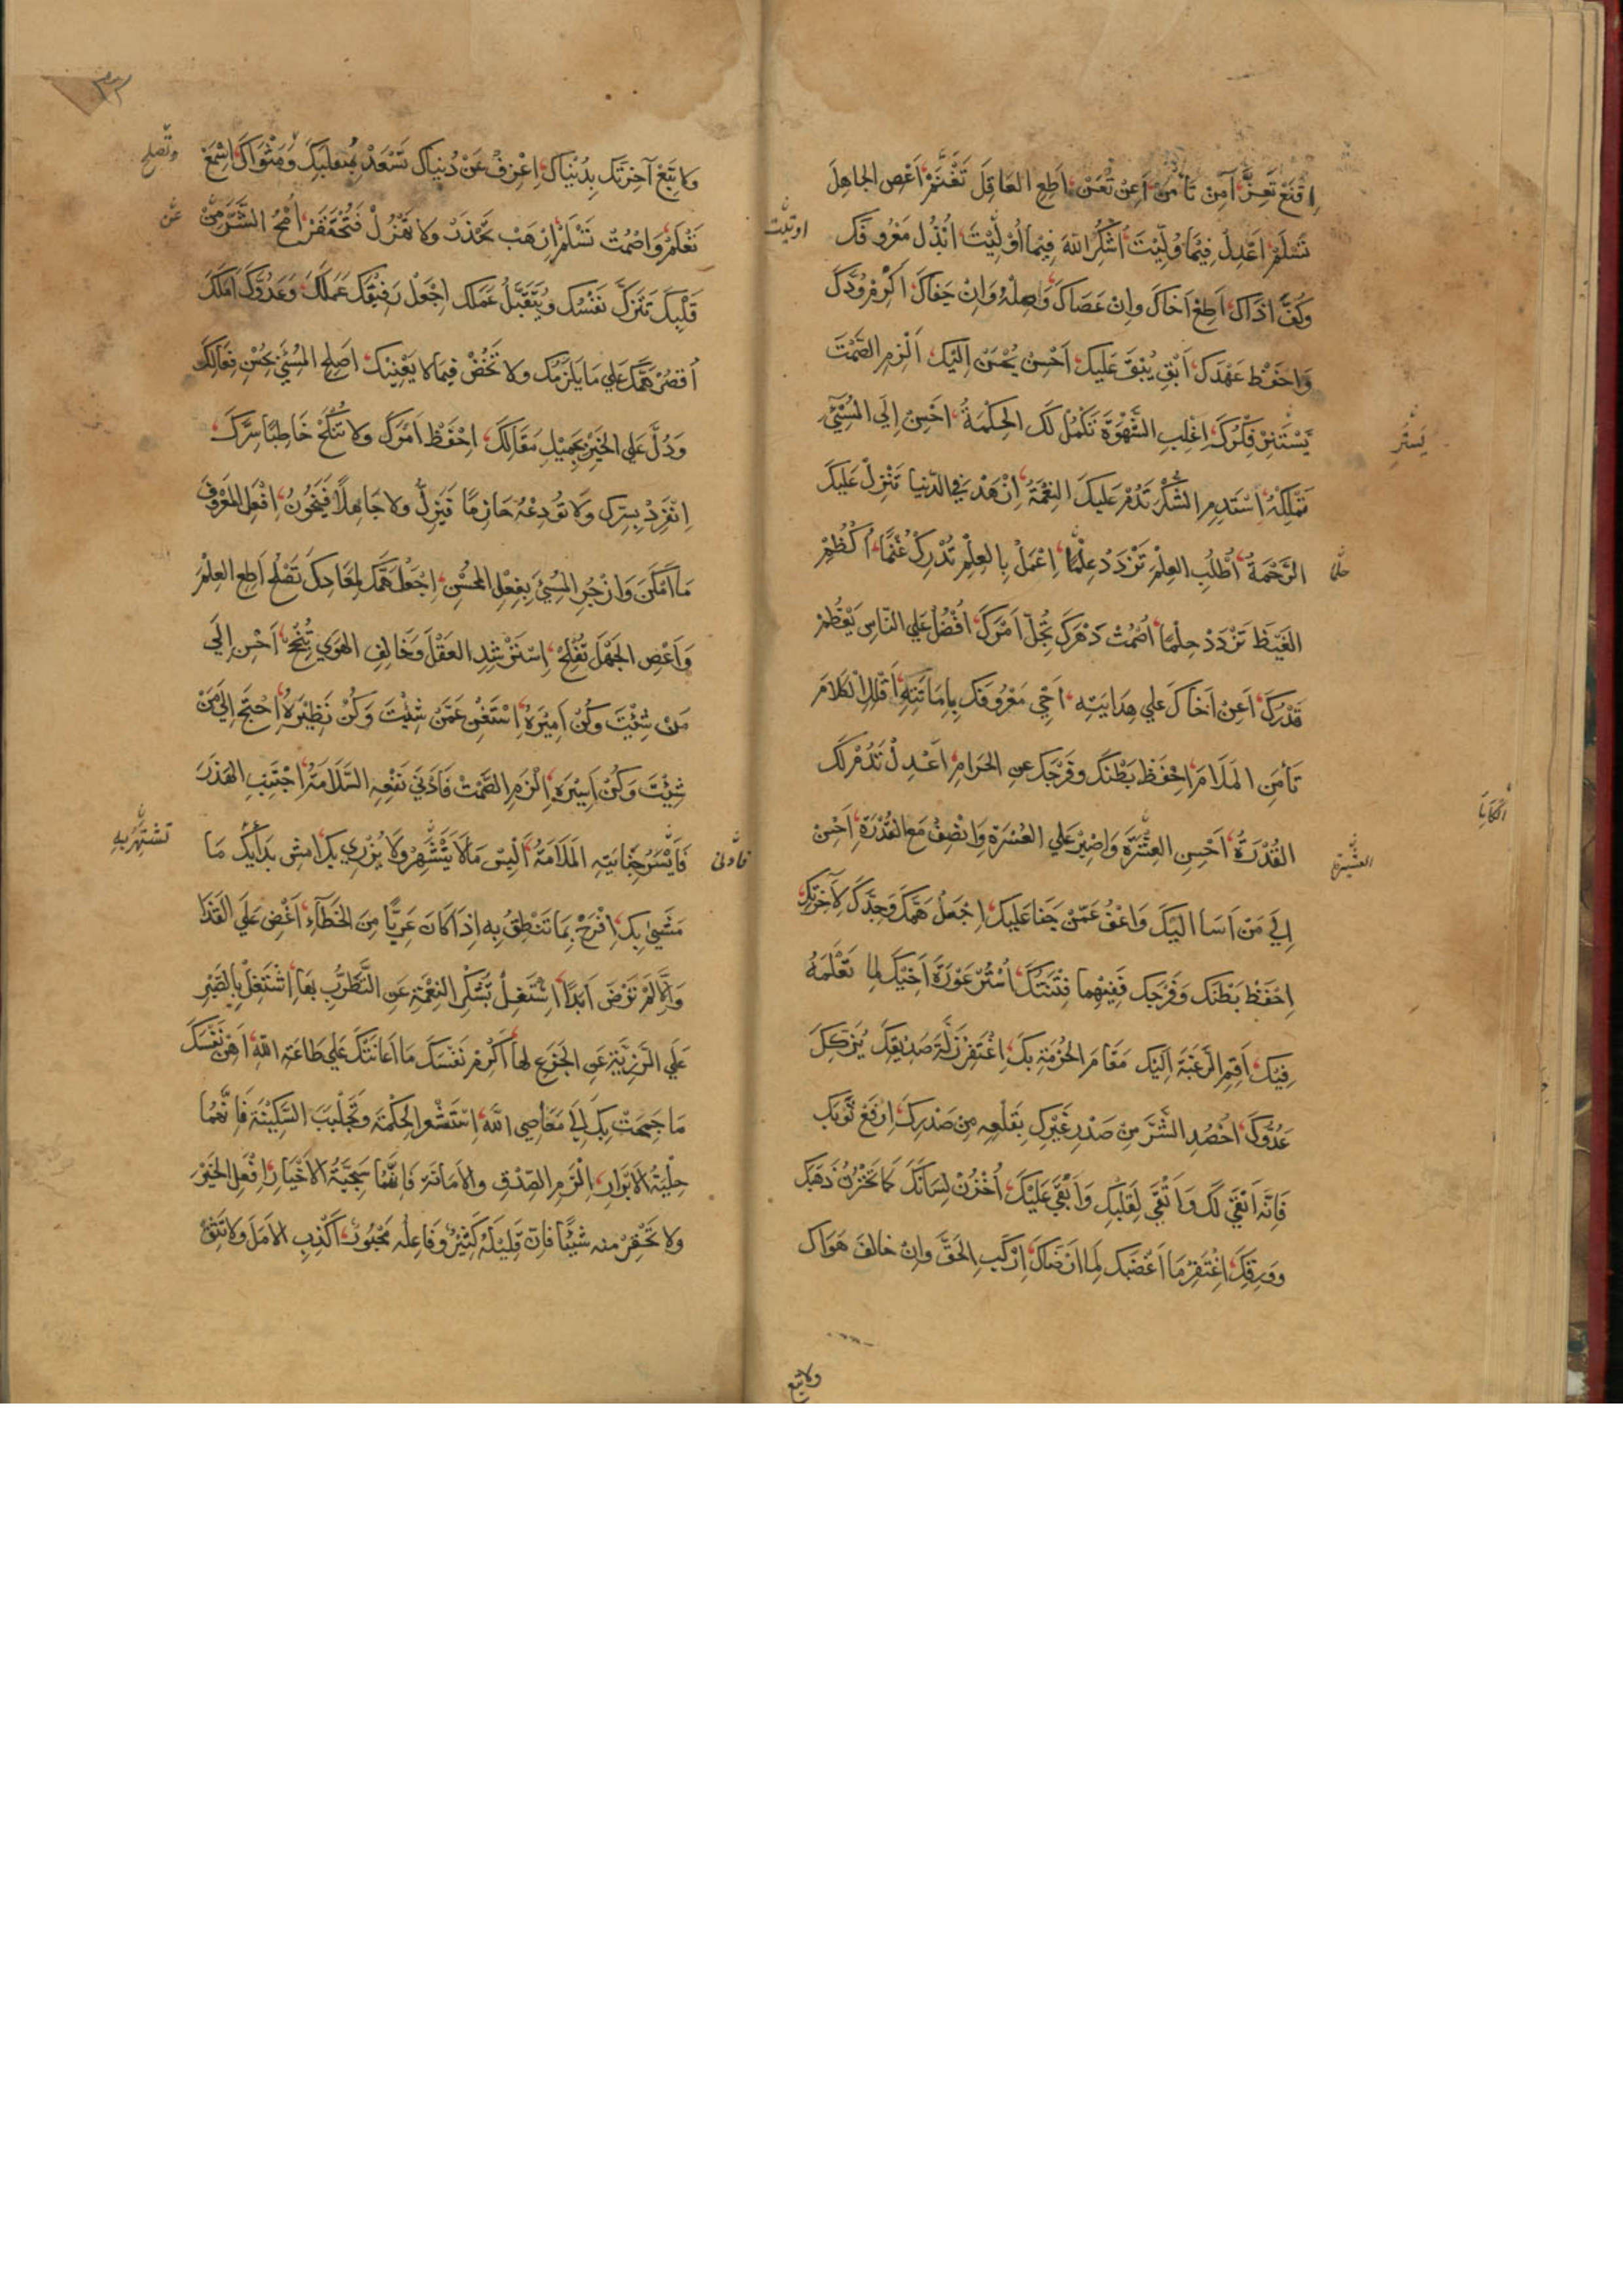 اِقْنَعْ تَعِزَّ، آمِنْ تَأْمَنْ، اَعِنْ تُعَنْ، اَطِعِ العَاقِلَ تَغْنَمْ، اَعْصِ الجَاهِلَ
تَسْلَمْ، اعْدِلْ فِيْمَا وُلِّيْتَ، اُشْكُرِ اللّٰهَ فِيْمَا اُوْلِيْتَ، ابْذُلْ مَعْرُوفَكَ
وَكُفَّ اَذَاكَ، اَطِعْ اَخَاكَ وَاِنْ عَصَاكَ، وَاصِلْهُ وَاِنْ جَفَاكَ، اَكْرِمْ وُدَّكَ
وَاحْفَظْ عَهْدَكَ، اَبْقِ يُبْقَ عَلَيكَ، اَحْسِنْ يُحْسَنْ اِلَيْكَ، اَلْزِمِ الصَّمْتَ
يَسْتَنِرْ فِكْرُكَ، اِغْلِبِ الشَّهْوَةَ تَكْمُلْ لَكَ الحِكْمَةُ، اَحْسِنْ اِلَي المُسِيْئِ
تَمْلِكْهُ، اِسْتَدِمِ الشُّكْرَ تَدُمْ عَلَيكَ النِعْمَةُ، اِزْهَدْ فِي الدّنيا تَنْزِلْ عَلَيكَ
الرَّحْمَةُ، اُطْلُبِ العِلْمَ تَزْدَدْ عِلْمًا، اِعْمَلْ بِالعِلْمِ تُدْرِكْ غُنْمًا، اُكْظُمْ
الغَيْظَ تَزْدَدْ حِلْمًا، اُصْمُتْ دَهْرَكَ يَجُلَّ اَمْرُكَ، اُفْضُلْ عَلَي النَّاسِ يَعْظُمْ
قَدْرُكَ، اَعِنْ اَخَاكَ عَلي هِدَايَتِهِ، اَحْيِ مَعْرُوفَكَ بِاِمَاتَتِهِ، اَقْلِلِ الكَلَامَ
تَأمَنِ المَلَامَ، اِحْفَظْ بَطْنَكَ وفَرْجَكَ عَنِ الحَرَامِ، اَعْدِلْ تَدُمْ لَكَ
القُدْرَةُ، اَحْسِنِ العِشْرَةَ وَاصْبِرْ عَلي العُسْرَةِ وَانْصِفْ مَعَ القُدْرَةِ، اَحْسِنْ
اِلَي مَنْ اَسَا اِلَيْكَ وَاعْفُ عَمَّنْ جَنَا عَلَيكَ، اِجْعَلْ هَمَّكَ وَجِدَّكَ لِاٰخِرَتِكَ
اِحْفَظْ بَطْنَكَ وَفَرْجَكَ فَفِيْهِمَا فِتْنَتُكَ، اُسْتُرْ عَوْرَةَ اَخِيْكَ لِمَا تَعْلَمُهُ
فِيْكَ، اَقِمِ الرَّغْبَةَ اِلَيْكَ مَقَامَ الحُرْمَةِ بِكَ، اِغْتَفِرْ زَلَّةَ صَدِيْقِكَ يُزَكِّكَ
عَدُوُّكَ، اُحْصُدِ الشَّرَّ مِنْ صَدْرِ غَيْرِكَ بِقَلْعِهِ مِنْ صَدْرِكَ، اِرْفَعْ ثَوْبَكَ
فَاِنَّهُ اَنْقَي لَكَ وَاَتْقَي لِقَلْبِكَ وَاَبْقَي عَلَيْكَ، اُخْزُنْ لِسَانَكَ كَمَا تَخْزُنُ ذَهَبَكَ
وَوَرِقَكَ، اِغْتَفِرْ مَا اَغْضَبَكَ لِمَا اَرْضَاكَ، اِرْكَبِ الحَقَّ وَاِنْ خَالَفَ هَوَاكَ
ولا تبع
اوتيت
يستر
حلما
العشيرة
٣٢
وَلا تَبِعْ آخِرَتَكَ بِدُنْيَاكَ، اِعْزِفْ عَنْ دُنْيَاكَ تَسْعَدْ بِمُنْقَلَبِكَ وَمَثْوَاكَ، اِسْمَعْ
تَعْلَمْ، وَاصْمُتْ تَسْلَمْ، اِرْهَبْ تَحْذَرْ وَلا تَهْزُلْ فَتُحْتَقَرْ، اُمْحُ الشَّرَّ مِنْ
قَلْبِكَ تَتَزَكَّ نَفْسُكَ وَيُتَقَبَّلْ عَمَلُكَ، اِجْعَلْ رَفِيْقَكَ عَمَلَكَ وَعَدُوَّكَ اَمَلَكَ
اُقْصُرْ هَمَّكَ عَلي مَا يَلْزَمُكَ وَلا تَخُضْ فِيْمَا لا يَعْنِيْكَ، اَصْلِحِ المُسِيْئَ بِحُسْنِ فِعَالِكَ
وَدُلَّ عَلي الخَيْرِ بِجَمِيْلِ مَقَالِكَ، اِحْفَظْ اَمْرَكَ وَلا تُنْكِحْ خَاطِبًا سِرَّكَ
اِنْفَرِدْ بِسِرِّكَ وَلَا تُوْدِعْهُ حَازِمًا فَيَزِلَّ وَلا جَاهِلًا فَيَخُوْنَ، اِفْعَلِ المَعْرُوفَ
مَا اَمْكَنَ وَازْجُرِ المُسِيْئَ بِفِعْلِ المُحْسِنِ، اِجْعَلْ هَمَّكَ لِمَعَادِكَ تَصْلُحْ، اَطِعِ العِلْمَ
وَاَعْصِ الجَهْلَ تُفْلِحْ، اِسْتَرْشِدِ العَقْلَ وَخَالِفِ الهَوَي تُنْجِحْ، اَحْسِنْ اِلَي
مَنْ شِئْتَ وَكُنْ اَمِيْرَهُ، اِسْتَغْنِ عَمَّنْ شِئْتَ وَكُنْ نَظِيْرَهُ، اِحْتَجْ اِلَي مَنْ
شِئْتَ وَكُنْ اَسِيْرَهُ، اِلْزَمِ الصَّمْتَ فَاَدْنَي نَفْعِهِ السَّلَامَةُ، اِجْتَنِبِ الهَذَرَ
فَاَيْسَرُ جِنَايَتِهِ المَلَامَةُ، اَلْبِسْ مَا لَا يَشْتَهِرُ وَلَا يُزْرِي بِكَ، اِمْشِ بِدَائِكَ مَا
مَشَيٰ بِكَ، اِفْرَحْ بِمَا تَنْطِقُ بِهِ اِذَا كَانَ عَرِيًّا مِنَ الخَطَآءِ، اَغْضِ عَلَي القَذَا
وَاِلَّا لَمْ تَرْضَ اَبَدًا، اِشْتَغِلْ بِشُكْرِ النِعْمَةِ عَنِ التَّطَرُّبِ بِهَا، اِشْتَغِلْ بِالصَّبْرِ
عَلَي الرَّزِيَّةِ عَنِ الجَزَعِ لَهَا، اَكْرِمْ نَفْسَكَ مَا اَعَانَتْكَ عَلي طَاعَةِ اللّٰهِ، اَهِنْ نَفْسَكَ
مَا جَمَحَتْ بِكَ اِلَي مَعَاصِي اللّٰهِ، اِسْتَشْعِرِ الحِكْمَةَ وَتَجَلْبَبَ السَّكِيْنَةَ فَاِنَّهُمَا
حِلْيَةُ الاَبْرَارِ، اِلْزَمِ الصِّدْقَ وَالاَمَانَةَ فَاِنَّهُمَا سَجِيَّةُ الاَخْيَارِ، اِفْعَلِ الخَيْرَ
وَلا تَحْقِرْ مِنْهُ شَيْئًا فَاِنَّ قَلِيْلَهُ كَثِيْرٌ وَفَاعِلُهُ مَحْبُوْرٌ، اَكْذِبِ الاَمَلَ وَلا تَثِقْ
وتصلح
عن
تشتهر به
فأدنى